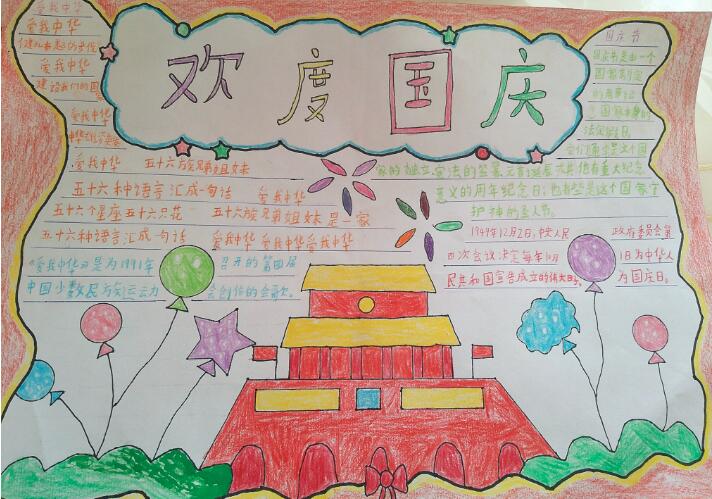 欢度国庆
爱我中华
爱我中华
爱我中华
建设我们的国
爱我中华
爱我中华 五十六族兄弟姐妹
五十六种语言汇成一句话 爱我中华
五十六个星座五十六只花 五十六族兄弟姐妹是一家
五十六种语言汇成一句话 爱我中华 爱我中华爱我中华
《爱我中华》是为1991年 召开的第四届
中国少数民族运动 会创作的会歌。
国庆节
国庆节是由一个
国家制定
的
法定节日。
它们通常是这个国
家的独立、宪法的签署、元首诞辰或其他有重大纪念
意义的周年纪念日;也有些是这个国家守
护神的圣人节。
1949年12月2日,中央人民 政府委员会第
四次会议决定每年10月 1日为中华人
民共和国宣告成立的伟大日 为国庆日。